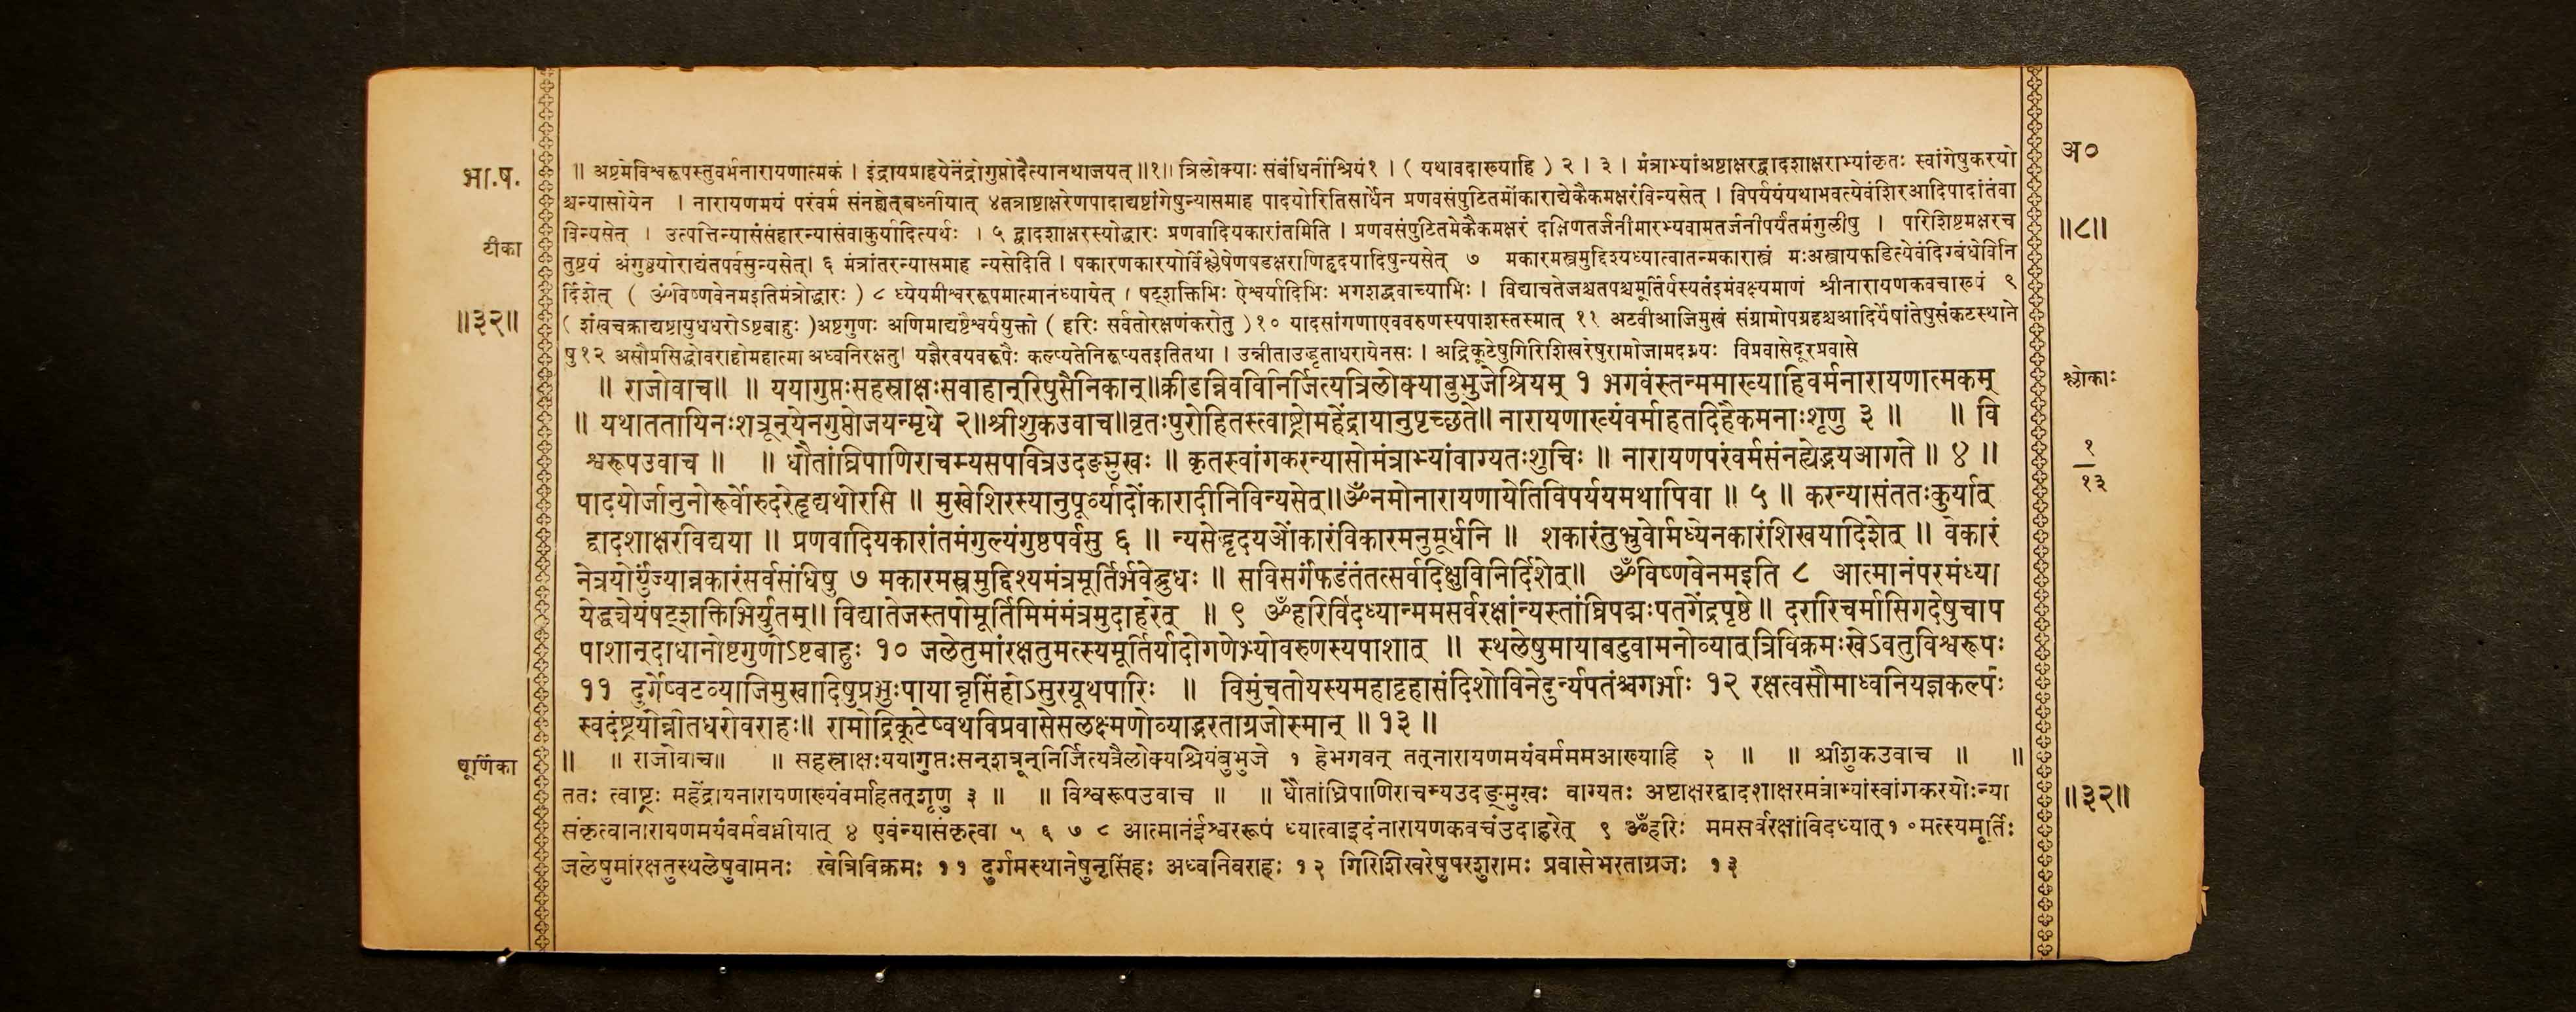 भा.ष.
टीका
॥३२॥
चूर्णिका
॥ अष्टमेविश्वरूपस्तुवर्मनारायणात्मकं । इंद्रायप्राहयेनेंद्रोगुप्तोदैत्यानथाजयत् ॥१॥ त्रिलोक्याः संबंधिनींश्रियं१ । ( यथावदाख्याहि ) २ । ३ । मंत्राभ्यांअष्टाक्षरद्वादशाक्षराभ्यांकृतः स्वांगेषुकरयो
श्चन्यासोयेन । नारायणमयं परंवर्म संनह्येत्बध्नीयात् ४तत्राष्टाक्षरेणपादाद्यष्टांगेषुन्यासमाह पादयोरितिसार्धेन प्रणवसंपुटितमोंकाराद्येकैकमक्षरंविन्यसेत् । विपर्ययंयथाभवत्येवंशिरआदिपादांतंवा
विन्यसेत् । उत्पत्तिन्यासंसंहारन्यासंवाकुर्यादित्यर्थः । ५ द्वादशाक्षरस्योद्धारः प्रणवादियकारांतमिति । प्रणवसंपुटितमेकैकमक्षरं दक्षिणतर्जनीमारभ्यवामतर्जनीपर्यंतमंगुलीषु । परिशिष्टमक्षरच
तुष्टयं अंगुष्ठयोराद्यंतपर्वसुन्यसेत्। ६ मंत्रांतरन्यासमाह न्यसेदिति । षकारणकारयोर्विश्लेषेणषडक्षराणिहृदयादिषुन्यसेत् ७ मकारमस्त्रमुद्दिश्यध्यात्वातन्मकारास्त्रं मःअस्त्रायफडित्येवंदिग्बंधेविनि
र्दिशेत् ( ॐविष्णवेनमइतिमंत्रोद्धारः ) ८ ध्येयमीश्वररूपमात्मानंध्यायेत् । षट्शक्तिभिः ऐश्वर्यादिभिः भगशब्दवाच्याभिः । विद्याचतेजश्चतपश्चमूर्तिर्यस्यतंइमंवक्ष्यमाणं श्रीनारायणकवचाख्यं ९
( शंखचक्राद्यष्टायुधधरोऽष्टबाहुः )अष्टगुणः अणिमाद्यष्टैश्वर्ययुक्तो ( हरिः सर्वतोरक्षणंकरोतु )१० यादसांगणाएववरुणस्यपाशस्तस्मात् ११ अटवीआजिमुखं संग्रामोपग्रहश्चआदिर्येषांतेषुसंकटस्थाने
षु१२ असौप्रसिद्धोवराहोमहात्मा अध्वनिरक्षतु। यज्ञैरवयवरूपैः कल्प्यतेनिरूप्यतइतितथा । उन्नीताउद्धृताधरायेनसः । अद्रिकूटेषुगिरिशिखरेषुरामोजामदग्न्यः विप्रवासेदूरप्रवासे
॥ राजोवाच॥ ॥ ययागुप्तःसहस्राक्षःसवाहान्रिपुसैनिकान्॥क्रीडन्निवविनिर्जित्यत्रिलोक्याबुभुजेश्रियम् १ भगवंस्तन्ममाख्याहिवर्मनारायणात्मकम्
॥ यथाततायिनःशत्रून्येनगुप्तोजयन्मृधे २॥श्रीशुकउवाच॥वृतःपुरोहितस्त्वाष्ट्रोमहेंद्रायानुपृच्छते॥ नारायणाख्यंवर्माहतदिहैकमनाःशृणु ३ ॥ ॥ वि
श्वरूपउवाच ॥ ॥ धौतांघ्रिपाणिराचम्यसपवित्रउदङमुखः ॥ कृतस्वांगकरन्यासोमंत्राभ्यांवाग्यतःशुचिः ॥ नारायणपरंवर्मसंनह्येद्भयआगते ॥ ४ ॥
पादयोर्जानुनोरूर्वोरुदरेहृद्यथोरसि ॥ मुखेशिरस्यानुपूर्व्यादोंकारादीनिविन्यसेत्॥ॐनमोनारायणायेतिविपर्ययमथापिवा ॥ ५ ॥ करन्यासंततःकुर्यात्
द्वादशाक्षरविद्यया ॥ प्रणवादियकारांतमंगुल्यंगुष्ठपर्वसु ६ ॥ न्यसेद्धृदयओंकारंविकारमनुमूर्धनि ॥ शकारंतुभ्रुवोर्मध्येनकारंशिखयादिशेत् ॥ वेकारं
नेत्रयोर्युंज्यान्नकारंसर्वसंधिषु ७ मकारमस्त्रमुद्दिश्यमंत्रमूर्तिर्भवेद्बुधः ॥ सविसर्गंफडंतंतत्सर्वदिक्षुविनिर्दिशेत्॥ ॐविष्णवेनमइति ८ आत्मानंपरमंध्या
येद्ध्येयंषट्शक्तिभिर्युतम्॥ विद्यातेजस्तपोमूर्तिमिमंमंत्रमुदाहरेत् ॥ ९ ॐहरिर्विदध्यान्ममसर्वरक्षांन्यस्तांघ्रिपद्मःपतगेंद्रपृष्ठे॥ दरारिचर्मासिगदेषुचाप
पाशान्दाधानोष्टगुणोऽष्टबाहुः १० जलेतुमांरक्षतुमत्स्यमूर्तिर्यादोगणेभ्योवरुणस्यपाशात् ॥ स्थलेषुमायाबटुवामनोव्यात्त्रिविक्रमःखेऽवतुविश्वरूपः
११ दुर्गेष्वटव्याजिमुखादिषुप्रभुःपायान्नृसिंहोऽसुरयूथपारिः ॥ विमुंचतोयस्यमहाट्टहासंदिशोविनेदुर्न्यपतंश्चगर्भाः १२ रक्षत्वसौमाध्वनियज्ञकल्पः
स्वदंष्ट्रयोन्नीतधरोवराहः॥ रामोद्रिकूटेष्वथविप्रवासेसलक्ष्मणोव्याद्भरताग्रजोस्मान् ॥ १३ ॥
॥ ॥ राजोवाच॥ ॥ सहस्राक्षःययागुप्तःसन्शत्रून्निर्जित्यत्रैलोक्यश्रियंबुभुजे १ हेभगवन् तत्नारायणमयंवर्मममआख्याहि २ ॥ ॥ श्रीशुकउवाच ॥ ॥
ततः त्वाष्ट्रः महेंद्रायनारायणाख्यंवर्माहतत्शृणु ३ ॥ ॥ विश्वरूपउवाच ॥ ॥ धौतांघ्रिपाणिराचम्यउदङ्मुखः वाग्यतः अष्टाक्षरद्वादशाक्षरमंत्राभ्यांस्वांगकरयोःन्या
संकृत्वानारायणमयंवर्मबध्नीयात् ४ एवंन्यासंकृत्वा ५ ६ ७ ८ आत्मानंईश्वररूपं ध्यात्वाइदंनारायणकवचंउदाहरेत् ९ ॐहरिः ममसर्वरक्षांविदध्यात्१०मत्स्यमूर्तिः
जलेषुमांरक्षतुस्थलेषुवामनः खेत्रिविक्रमः ११ दुर्गमस्थानेषुनृसिंहः अध्वनिवराहः १२ गिरिशिखरेषुपरशुरामः प्रवासेभरताग्रजः १३
अ०
॥८॥
श्लोकाः
१
१३
॥३२॥